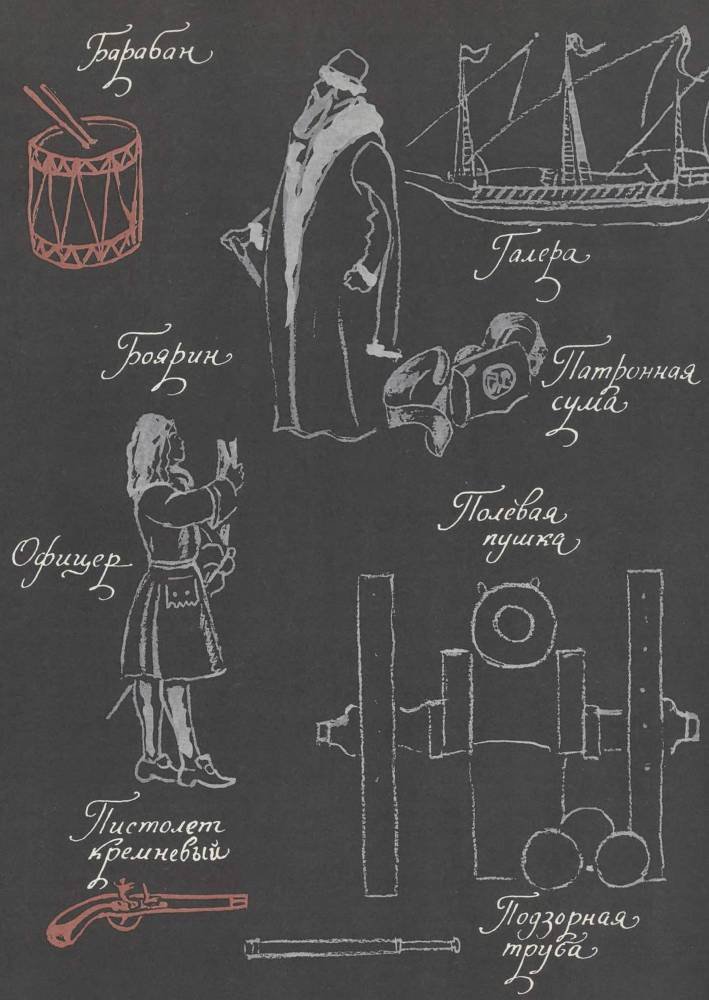 Барабан
Галера
Боярин
Патронная
сума
Полевая
пушка
Офицер
Пистолет
кремневый
Подзорная
труба